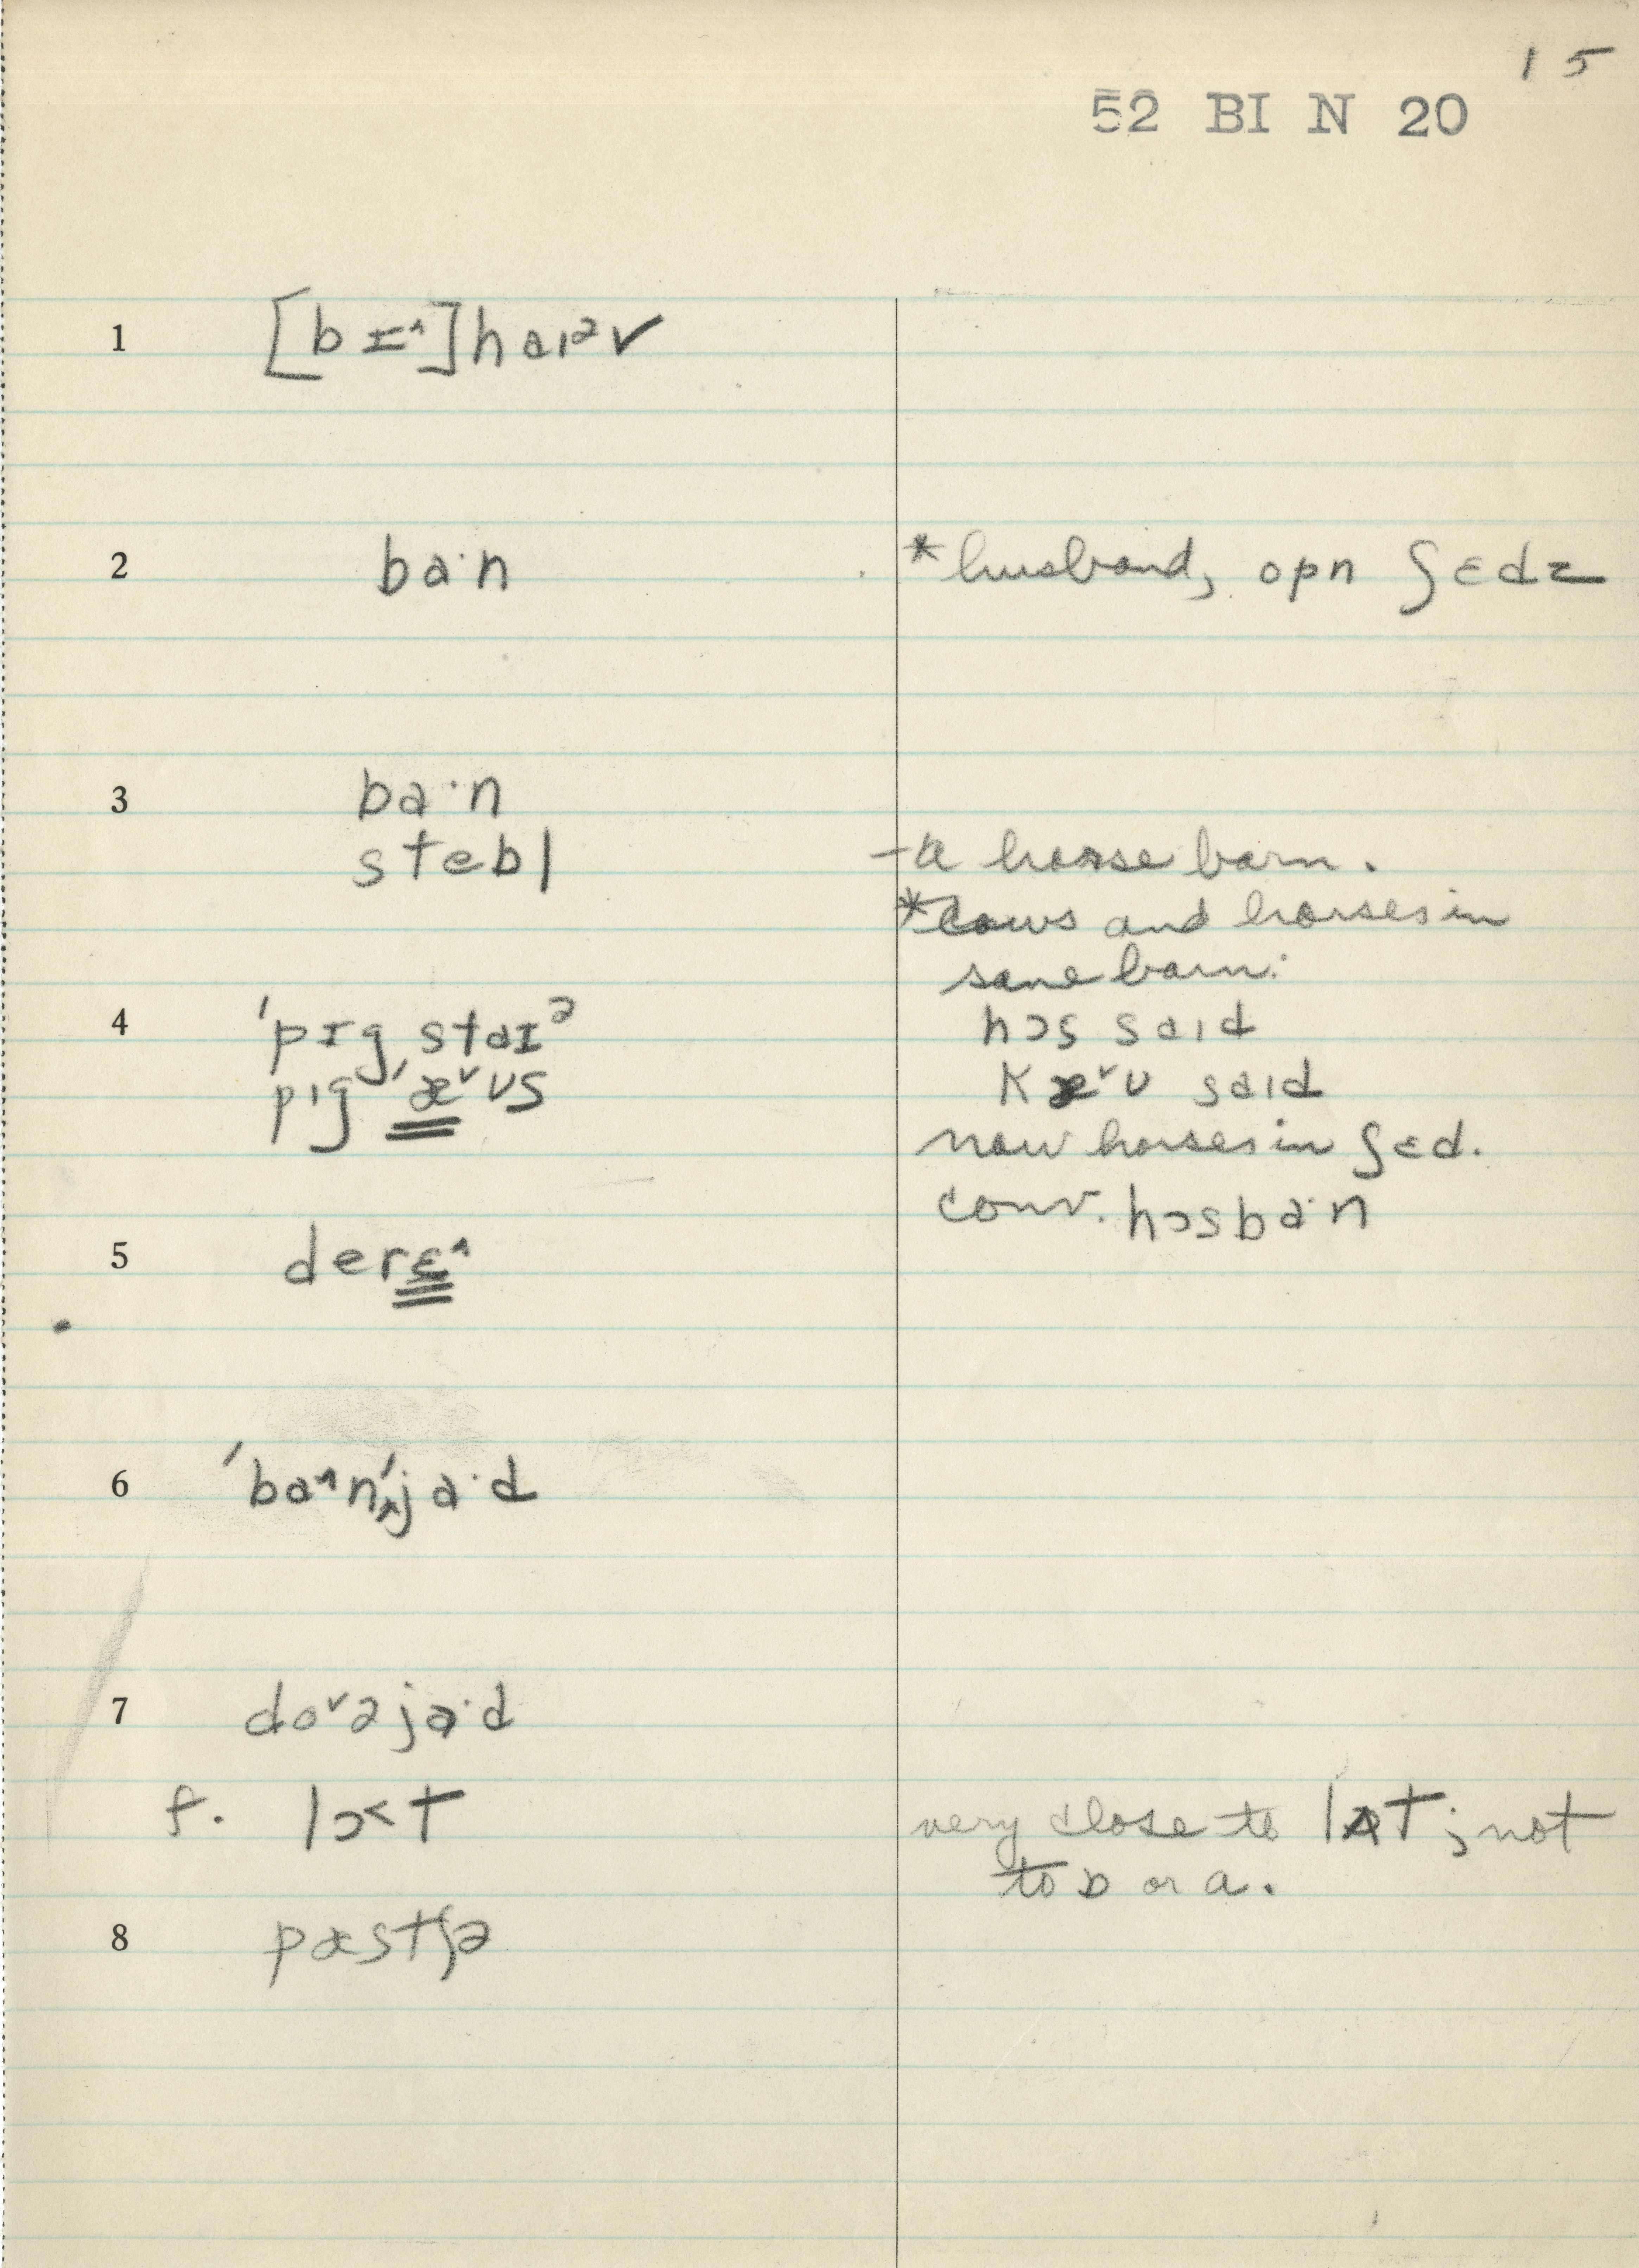 15
52 BI N 20
1 [b ɪ^] h aɪᵊ v
2 ba·n *husband, opn ʃɛdz
3 ba·n
stebl - a horse barn.
*cows and horses in
same barn:
4 ˈpɪgˌstaɪᵊ hɔs said
pɪgˈæ^vʊs Kæ^vʊ said
now horses in ʃɛd.
conv. hɔsba·n
5 derɛ^
6 ˈba^nˌja·d
7 do^vəja·d
f. lɔ<t very close to lʌt; not
to ɒ or a.
8 pæstʃə